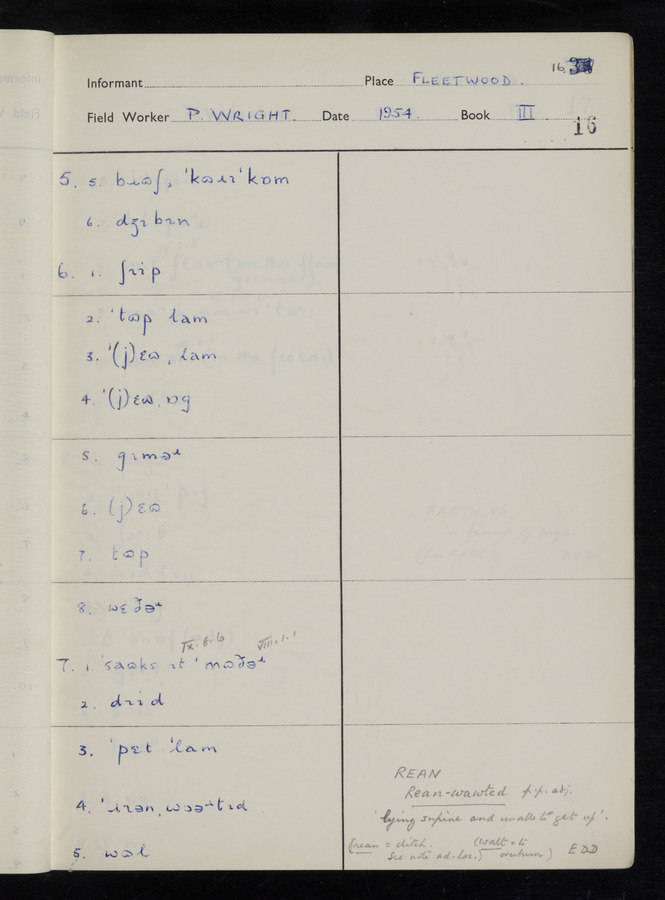 16
Informant Place FLEETWOOD.
Field Worker P. WRIGHT. Date 1954. Book III
16
5. 5. bɹɷʃ, ˈkɷɪɹˈkɒm
6. dʒɪbɪn
6. 1. ʃɪip
2. ˈtɷp lam
3. ˈ(j)ɛɷ, lam
4. ˈ(j)ɛɷ, ɒg
5. gɪməɹ
6. (j)ɛɷ
7. tɷp
8. wɛðəɹ
IX.8.6 VIII.1.1
7. 1. ˈsaɷks ɪt ˈmɷðəɹ
2. dɪid
3. ˈpɛt ˈlam
4.
5. wɷl
REAN
Rean-wawted p.p. adj.
'lying supine and unable to get up'.
(rean = ditch. (walt = to
overturn) EDD